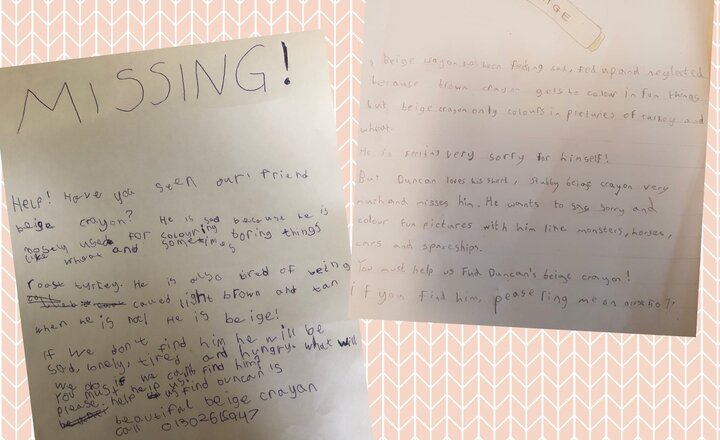 MISSING!
Help! Have you seen our friend
beige crayon? He is sad because he is
mosely used for colouring boring things
like wheat and sometimes
roast turkey. He is also tired of being
called light brown and tan
when he is not! He is beige!
If we don't find him he will be
sad, lonely, tired and hungry. what will
we do if we can't find him?
You must help us!
please help us find Duncan is
beautiful beige crayon
call
BEIGE
beige crayon has been feeling sad, fed up and neglected
because brown crayon gets to colour in fun things
but beige crayon only colours in pictures of turkey and
wheat.
He is feeling very sorry for himself!
But Duncan loves his short, stubby beige crayon very
much and misses him. He wants to say sorry and
colour fun pictures with him like monsters, horses,
cars and spaceships.
You must help us find Duncan's beige crayon!
if you find him, please ring me on